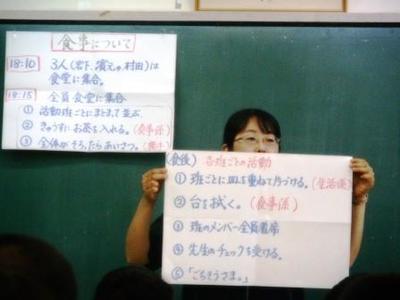 食事について
18:10 3人(岩下、濱元、村田)は
食堂に集合。
18:15 全員食堂に集合
① 活動班ごとにまとまって並ぶ
② きゅうすにお茶を入れる。(食事係)
③ 全体がそろったらあいさつ。
(食後) 各班ごとの活動
① 班ごとに皿を重ねて片づける。(生活係)
② 台を拭く。(食事係)
③ 班のメンバー全員着席
④ 先生のチェックを受ける。
⑤「ごちそうさま。」